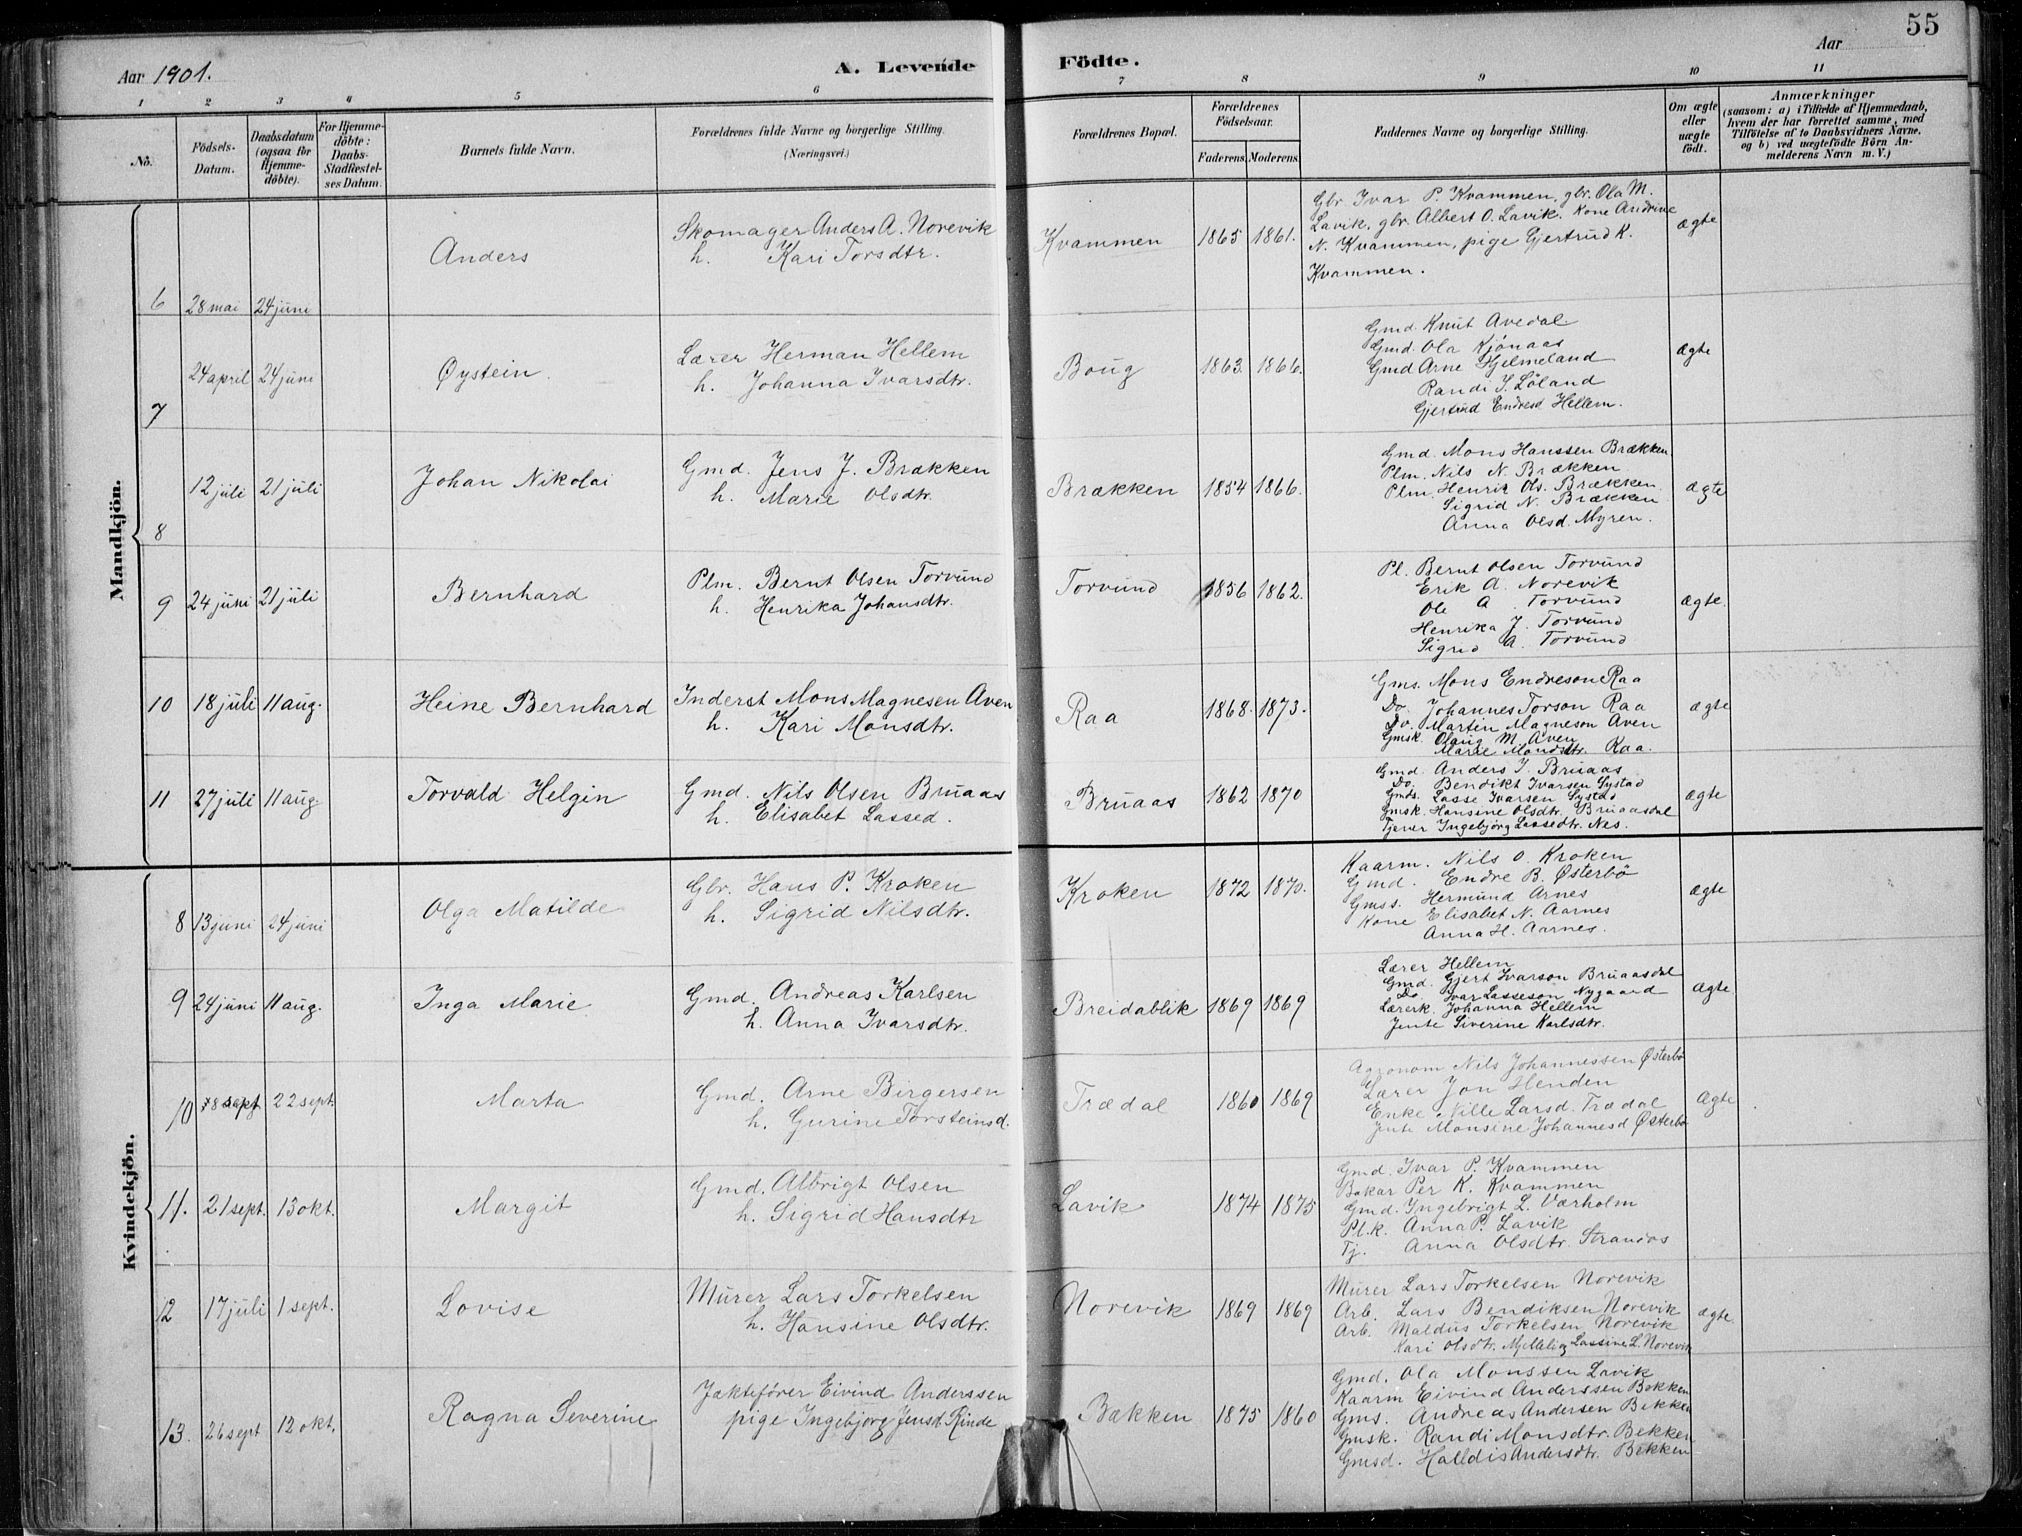 55
Aar 1901.
A. Levende Födte.
Aar
1 2 3 4 5 6 7 8 9 10 11
No.
Födsels-Datum.
Daabsdatum (ogsaa for Hjemme-döbte).
For Hjemme-döbte: Daabs-Stadfæstel-ses Datum.
Barnets fulde Navn.
Forældrenes fulde Navne og borgerlige Stilling. (Næringsvei.)
Forældrenes Bopæl.
Forældrenes Födselsaar.
Faderens. Moderens.
Faddernes Navne og borgerlige Stilling.
Om ægte eller uægte födt.
Anmærkninger
(saasom: a) i Tilfælde af Hjemmedaab, hvem der har forrettet samme, med Tilföielse af to Daabsvidners Navne. og b) ved uægtefödte Börn An-melderens Navn m. V.)
Mandkjön.
6 28 mai 24 juni Anders
Skomager Anders A. Norevik
h. Kari Torsdtr.
Kvammen 1865 1861.
Gbr. Ivar P. Kvammen, gbr. Ola M.
Lavik, gbr. Albert O. Lavik. Kone Andrine
N. Kvammen, pige Gjertrud K.
Kvammen.
ægte
7 24 april 24 juni Øystein.
Lærer Herman Hellem
h. Johanna Ivarsdtr.
Boug 1863. 1866.
Gmd. Knut Avedal
Gmd. Ola Kjönaas
Gmd Arne Hjelmeland
Randi I. Löland
Gjertrud Endresd Hellem.
ægte
8 12 juli 21 juli Johan Nikolai
Gmd. Jens J. Brækken
h. Marie Olsdtr.
Brækken 1854 1866.
Gmd. Mons Hanssen Brækken
Plm. Nils N. Brækken
Plm. Henrik Ols. Brækken.
Sigrid N. Brækken
Anna Olsd. Myren.
ægte
9 24 juni 21 juli Bernhard
Plm. Bernt Olsen Torvund
h. Henrika Johansdtr.
Torvund 1856 1862.
Pl. Bernt Olsen Torvund
Erik A. Norevik
Ole A. Torvund
Henrika J. Torvund
Sigrid A. Torvund
ægte.
10 18 juli 11 aug. Heine Bernhard
Inderst Mons Magnesen Aven
h. Kari Monsdtr.
Raa 1868. 1873.
Gms. Mons Endreson Raa
Do. Johannes Torson Raa
Do. Martin Magneson Aven
Gmsk. Olaug M. Aven
Marie Monsdtr. Raa.
ægte
11 27 juli 11 aug. Torvald Helgin
Gmd. Nils Olsen Bruaas
h. Elisabet Lassed.
Bruaas 1862 1870
Gmd. Anders I. Bruaas
Do. Bendikt Ivarsen Systad
Gmds. Lasse Ivarsen Systad
Gmsk. Hansine Olsdtr. Bruaasdal
Tjener Ingebjörg Lassedtr. Nes.
ægte
Kvindekjön.
8 13 juni 24 juni Olga Matilde
Gbr. Hans P. Kroken
h. Sigrid Nilsdtr.
Kroken 1872 1870.
Kaarm. Nils O. Kroken
Gmd. Endre B. Østerbö
Gmss. Hermund Arnes
Kone Elisabet N. Aarnes
Anna H. Aarnes.
ægte
9 24 juni 11 aug. Inga Marie
Gmd. Andreas Karlsen
h. Anna Ivarsdtr.
Breidablik 1869 1869
Lærer Hellem
Gmd. Gjert Ivarson Bruaasdal
Do. Ivar Lasseson Nygaard
Lærerk. Johanna Hellem
Jente Siverine Karlsdtr.
ægte
10 8 sept 22 sept. Marta
Gmd. Arne Birgersen
h. Gurine Torsteinsd.
Trædal 1860 1869
Agronom Nils Johannessen Østerbö
Lærer Jon Henden
Enke Nille Larsd. Trædal
Jente Monsine Johannesd Østerbö
Ægte
11. 21 sept. 13 okt. Margit
Gmd. Albrigt Olsen
h. Sigrid Hansdtr
Lavik 1874 1875
Gmd. Ivar P. Kvammen
Bakar Per K. Kvammen
Gmd. Ingebrigt L. Værholm
Pl.k. Anna P. Lavik
Tj. Anna Olsdtr.
12 17 juli 1 sept. Lovise
Murer Lars Torkelsen
h. Hansine Olsdtr.
Norevik 1869 1869
Murer Lars Torkelsen Norevik
Arb. Lars Bendiksen Norevik
Arb. Maldus Torkelsen Norevik
Kari Olsdtr. Lassine L. Norevik
ægte
13. 26 sept 12 okt. Ragna Severine
Jaktefører Eivind Anderssen
pige Ingebjörg Jensd. Rinde
Bækken 1875 1860
Gmd. Ola Monssen Lavik
Kaarm Eivind Anderssen Bekken
Gms. Andreas Andersen Bekken
Gmsk. Randi Monsdtr. Bekken
Gmsd. Halldis Andersdtr. Bekken